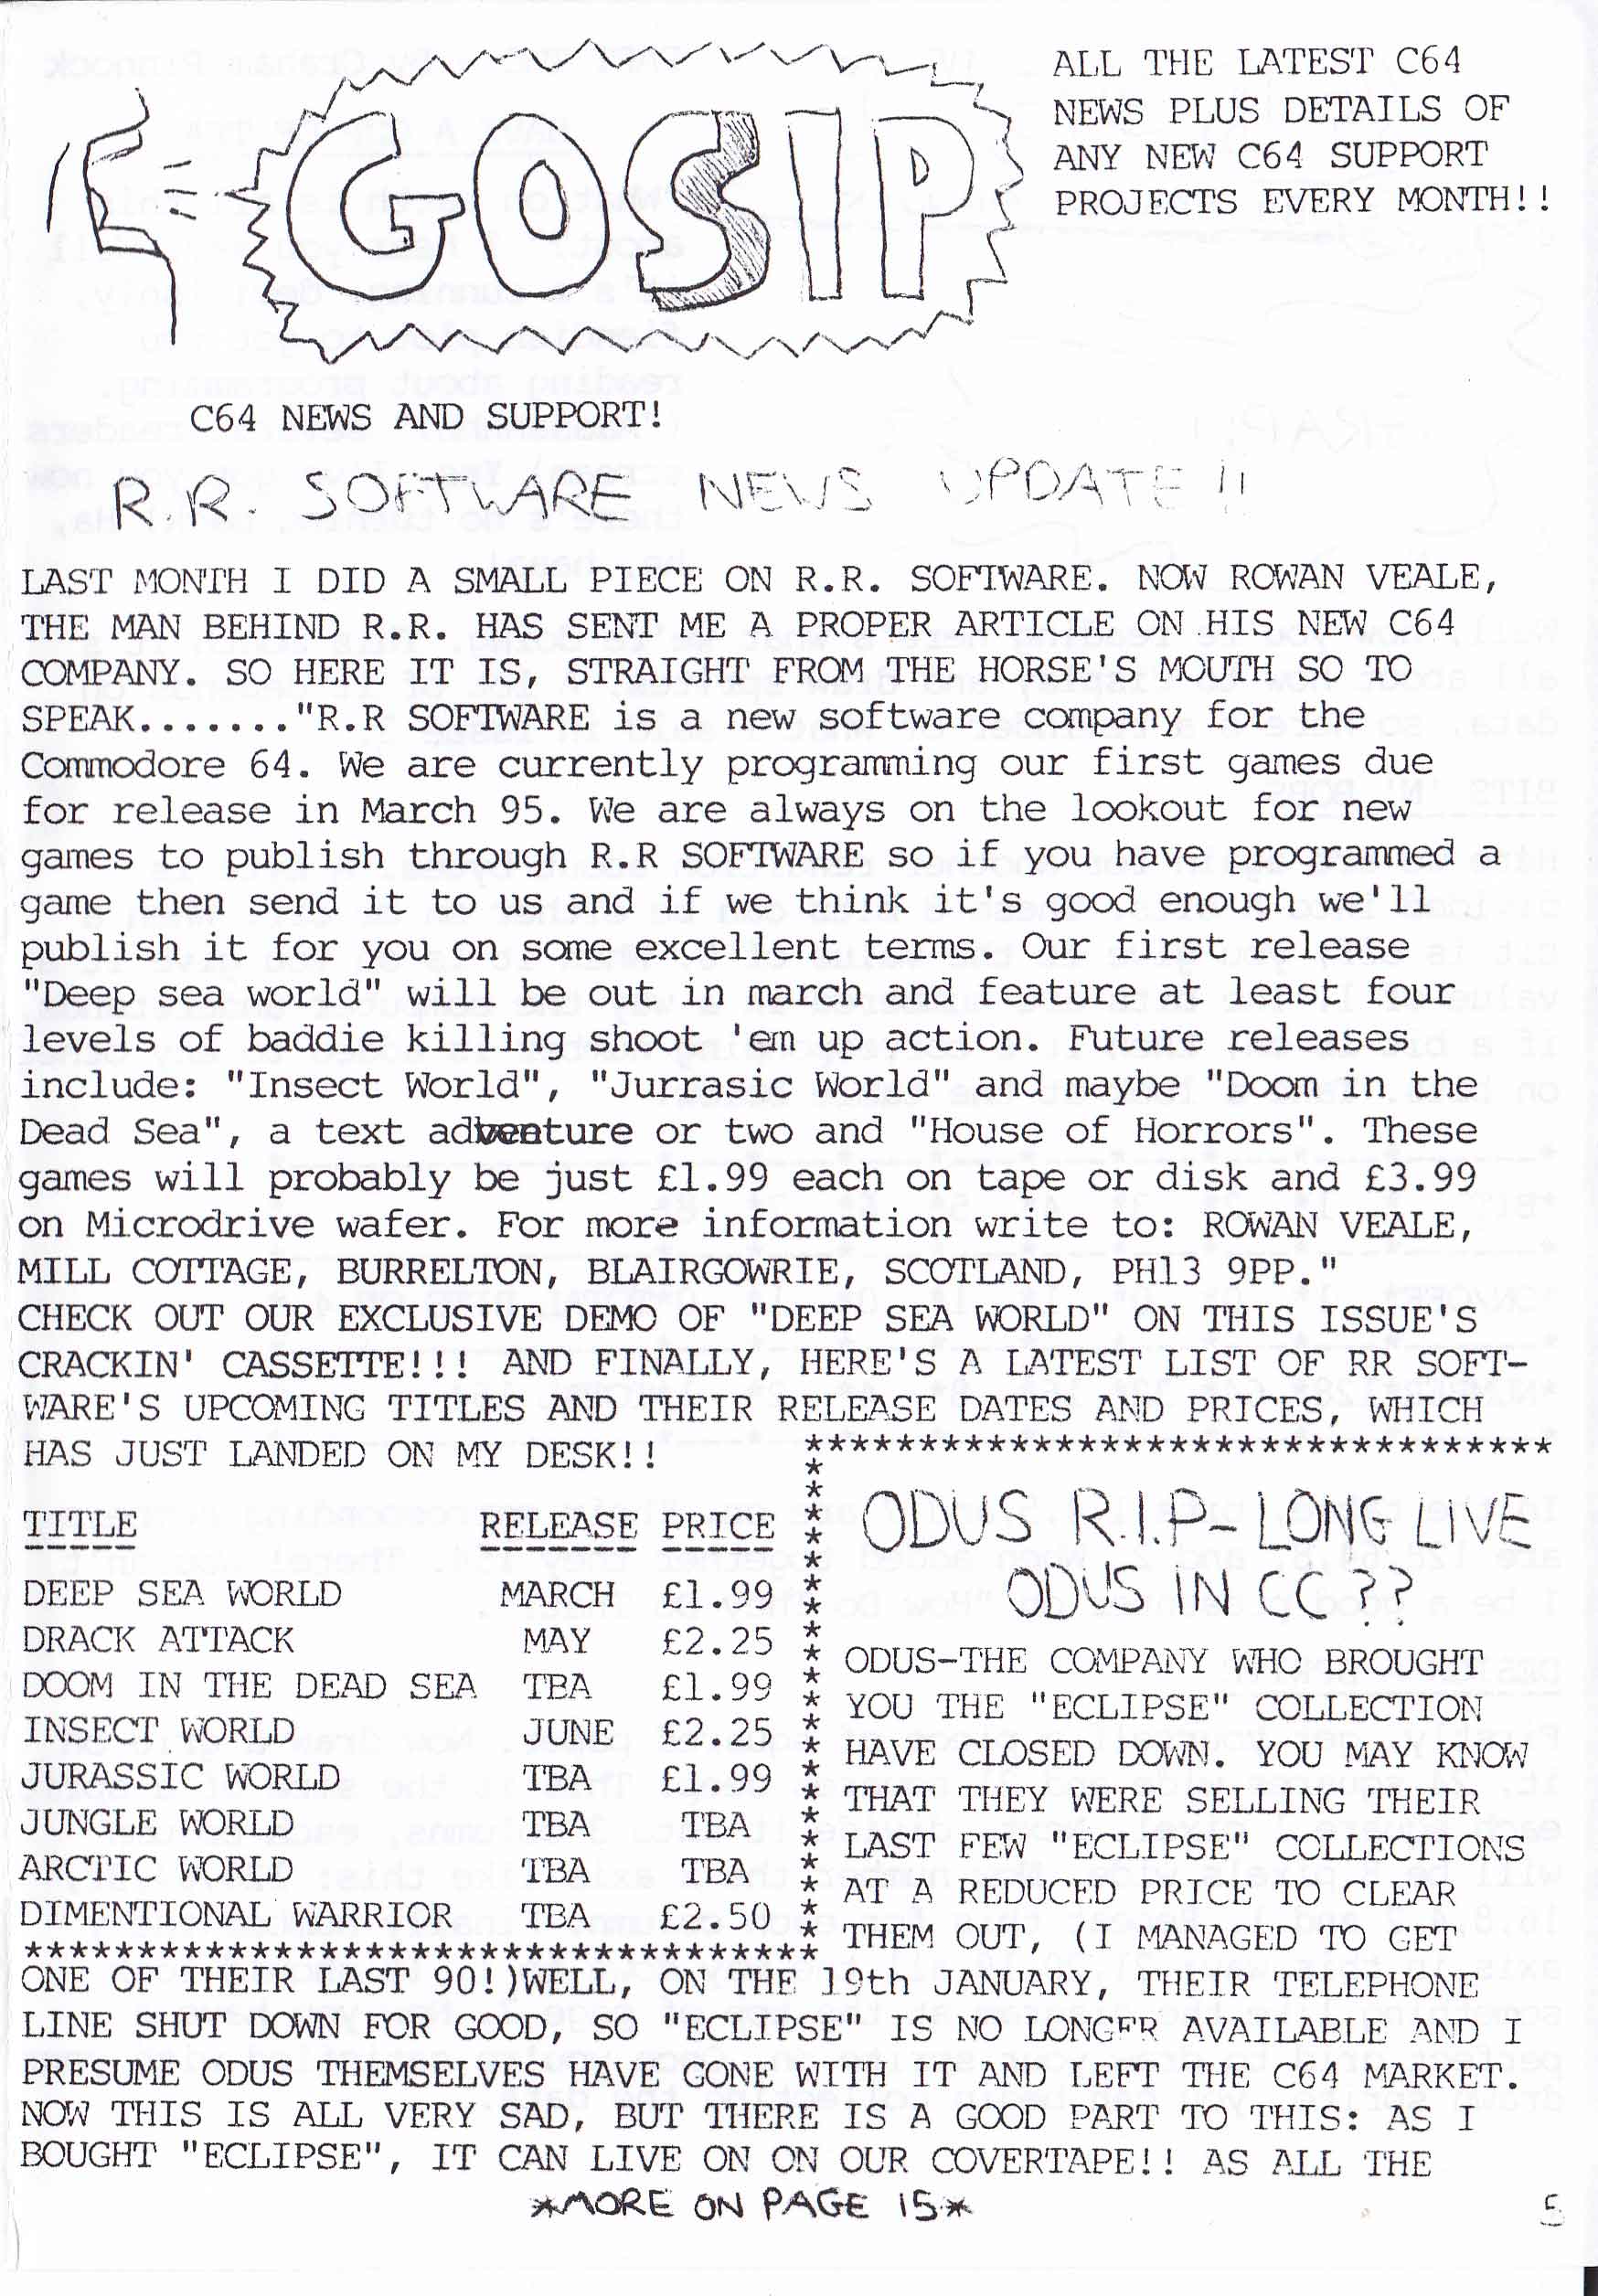 GOSIP
ALL THE LATEST C64
NEWS PLUS DETAILS OF
ANY NEW C64 SUPPORT
PROJECTS EVERY MONTH!!
C64 NEWS AND SUPPORT!
R.R. SOFTWARE NEWS UPDATE!!
LAST MONTH I DID A SMALL PIECE ON R.R. SOFTWARE. NOW ROWAN VEALE,
THE MAN BEHIND R.R. HAS SENT ME A PROPER ARTICLE ON HIS NEW C64
COMPANY. SO HERE IT IS, STRAIGHT FROM THE HORSE'S MOUTH SO TO
SPEAK......."R.R SOFTWARE is a new software company for the
Commodore 64. We are currently programming our first games due
for release in March 95. We are always on the lookout for new
games to publish through R.R SOFTWARE so if you have programmed a
game then send it to us and if we think it's good enough we'll
publish it for you on some excellent terms. Our first release
"Deep sea world" will be out in march and feature at least four
levels of baddie killing shoot 'em up action. Future releases
include: "Insect World", "Jurrasic World" and maybe "Doom in the
Dead Sea", a text adventure or two and "House of Horrors". These
games will probably be just £1.99 each on tape or disk and £3.99
on Microdrive wafer. For more information write to: ROWAN VEALE,
MILL COTTAGE, BURRELTON, BLAIRGOWRIE, SCOTLAND, PH13 9PP."
CHECK OUT OUR EXCLUSIVE DEMO OF "DEEP SEA WORLD" ON THIS ISSUE'S
CRACKIN' CASSETTE!!! AND FINALLY, HERE'S A LATEST LIST OF RR SOFT-
WARE'S UPCOMING TITLES AND THEIR RELEASE DATES AND PRICES, WHICH
HAS JUST LANDED ON MY DESK!!
TITLE RELEASE PRICE
DEEP SEA WORLD MARCH £1.99
DRACK ATTACK MAY £2.25
DOOM IN THE DEAD SEA TBA £1.99
INSECT WORLD JUNE £2.25
JURASSIC WORLD TBA £1.99
JUNGLE WORLD TBA TBA
ARCTIC WORLD TBA TBA
DIMENTIONAL WARRIOR TBA £2.50
ODUS R.I.P- LONG LIVE
ODUS IN CC??
ODUS-THE COMPANY WHO BROUGHT
YOU THE "ECLIPSE" COLLECTION
HAVE CLOSED DOWN. YOU MAY KNOW
THAT THEY WERE SELLING THEIR
LAST FEW "ECLIPSE" COLLECTIONS
AT A REDUCED PRICE TO CLEAR
THEM OUT, (I MANAGED TO GET
ONE OF THEIR LAST 90!)WELL, ON THE 19th JANUARY, THEIR TELEPHONE
LINE SHUT DOWN FOR GOOD, SO "ECLIPSE" IS NO LONGER AVAILABLE AND I
PRESUME ODUS THEMSELVES HAVE GONE WITH IT AND LEFT THE C64 MARKET.
NOW THIS IS ALL VERY SAD, BUT THERE IS A GOOD PART TO THIS: AS I
BOUGHT "ECLIPSE", IT CAN LIVE ON ON OUR COVERTAPE!! AS ALL THE
*MORE ON PAGE 15*
5